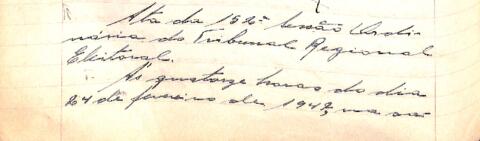 Ata da 152ª Sessão Ordi-
nária do Tribunal Regional
Eleitoral.
Ás quatorze horas do dia
24 de janeiro de 1947, na sé-